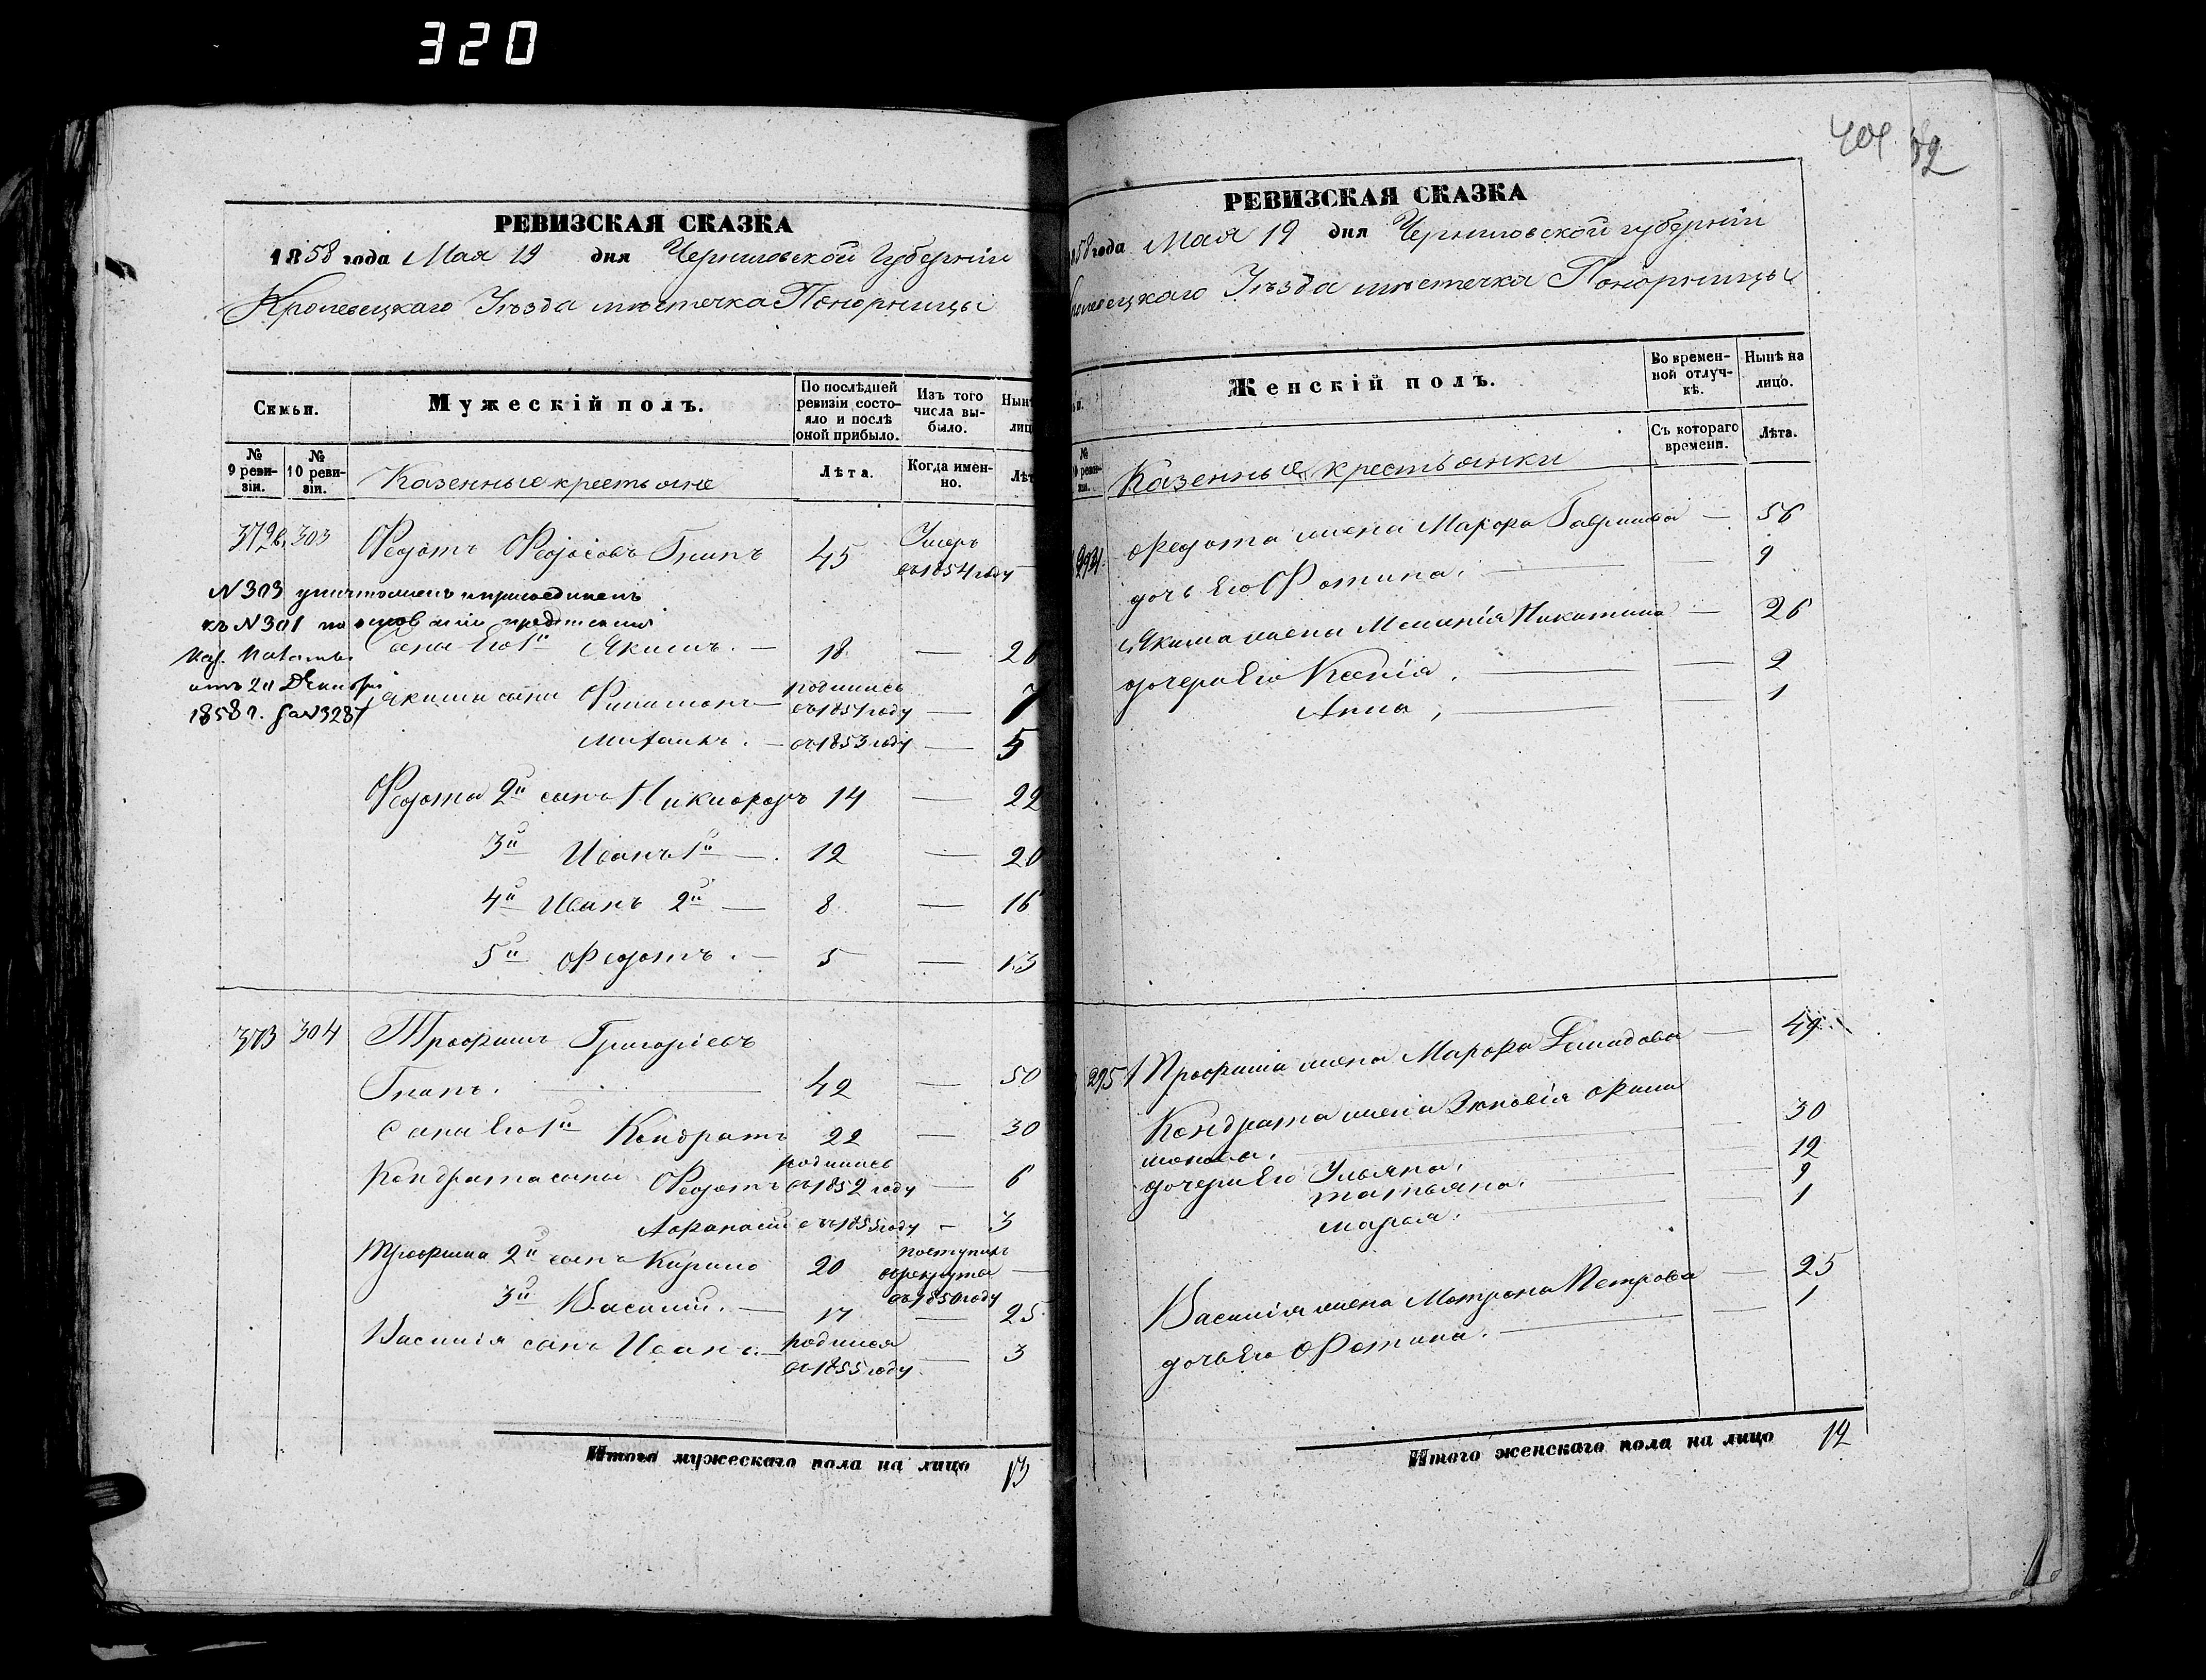 320
РЕВИЗСКАЯ СКАЗКА
1858 года Мая 19 дня Черниговской Губернiи
Кролевецкаго Уѣзда мѣстечка Понорницы
Семьи.
Мужескiй полъ.
По послѣдней ревизiи состояло и послѣ оной прибыло.
Изъ того числа выбыло.
Нын
лиц
№ 9 ревизiи.
№ 10 ревизiи.
Казенные крестьяне
Лѣта.
Когда именно.
Лѣт
303 Федотъ Гнипъ 45 Умеръ въ 1854 году
N 303 уничтоженъ и присоединенъ
къ N 301 по
Сына Его 1й Якимъ. — 18 —
отъ 20 Декабря
1858 г. за N 3287
Якима сыны Филимонъ — родились въ 1851 году — 7
Михаилъ. — въ 1853 году — 5
Федота 2й сынъ Никифоръ 14 — 22
3й Иванъ 1й — 12 — 20
4й Иванъ 2й — 8 — 16
5й Федотъ. — 5 — 13
373 304 Трофимъ Григорiевъ
Гнипъ. — 42 — 50
Сына Его 1й Кондратъ 22 — 30
Кондрата сыны Федотъ родились въ 1852 году — 6
Афанасiй въ 1855 году — 3
Трофима 2й сынъ Кирило 20 поступилъ въ рекруты въ 1850 году —
3й Василiй. — 17 — 25
Василiя сынъ Иванъ. — родился въ 1855 году — 3
Итого мужескаго пола на лицо 13
404 82
РЕВИЗСКАЯ СКАЗКА
858 года Мая 19 дня Черниговской губернiи
ецкаго Уѣзда мѣстечка Понорницы
Женскiй полъ.
Во временной отлучкѣ.
Нынѣ на лицо.
Съ котораго времени.
Лѣта.
Казенные крестьянки
Федота жена Марфа Гаврилова — 56
дочь Его Фотина. — 9
Якима жена Меланiя Никитина — 26
дочери Его Ксенiя, — 2
Анна, — 1
295 Трофима жена Марфа Демидова — 49
Кондрата жена Зиновiя Фили
монова. — 30
дочери Его Ульяна, — 12
Татьяна. — 9
Марфа. — 1
Василiя жена Матрона Петрова — 25
дочь Его Фотина. — 1
Итого женскаго пола на лицо 12